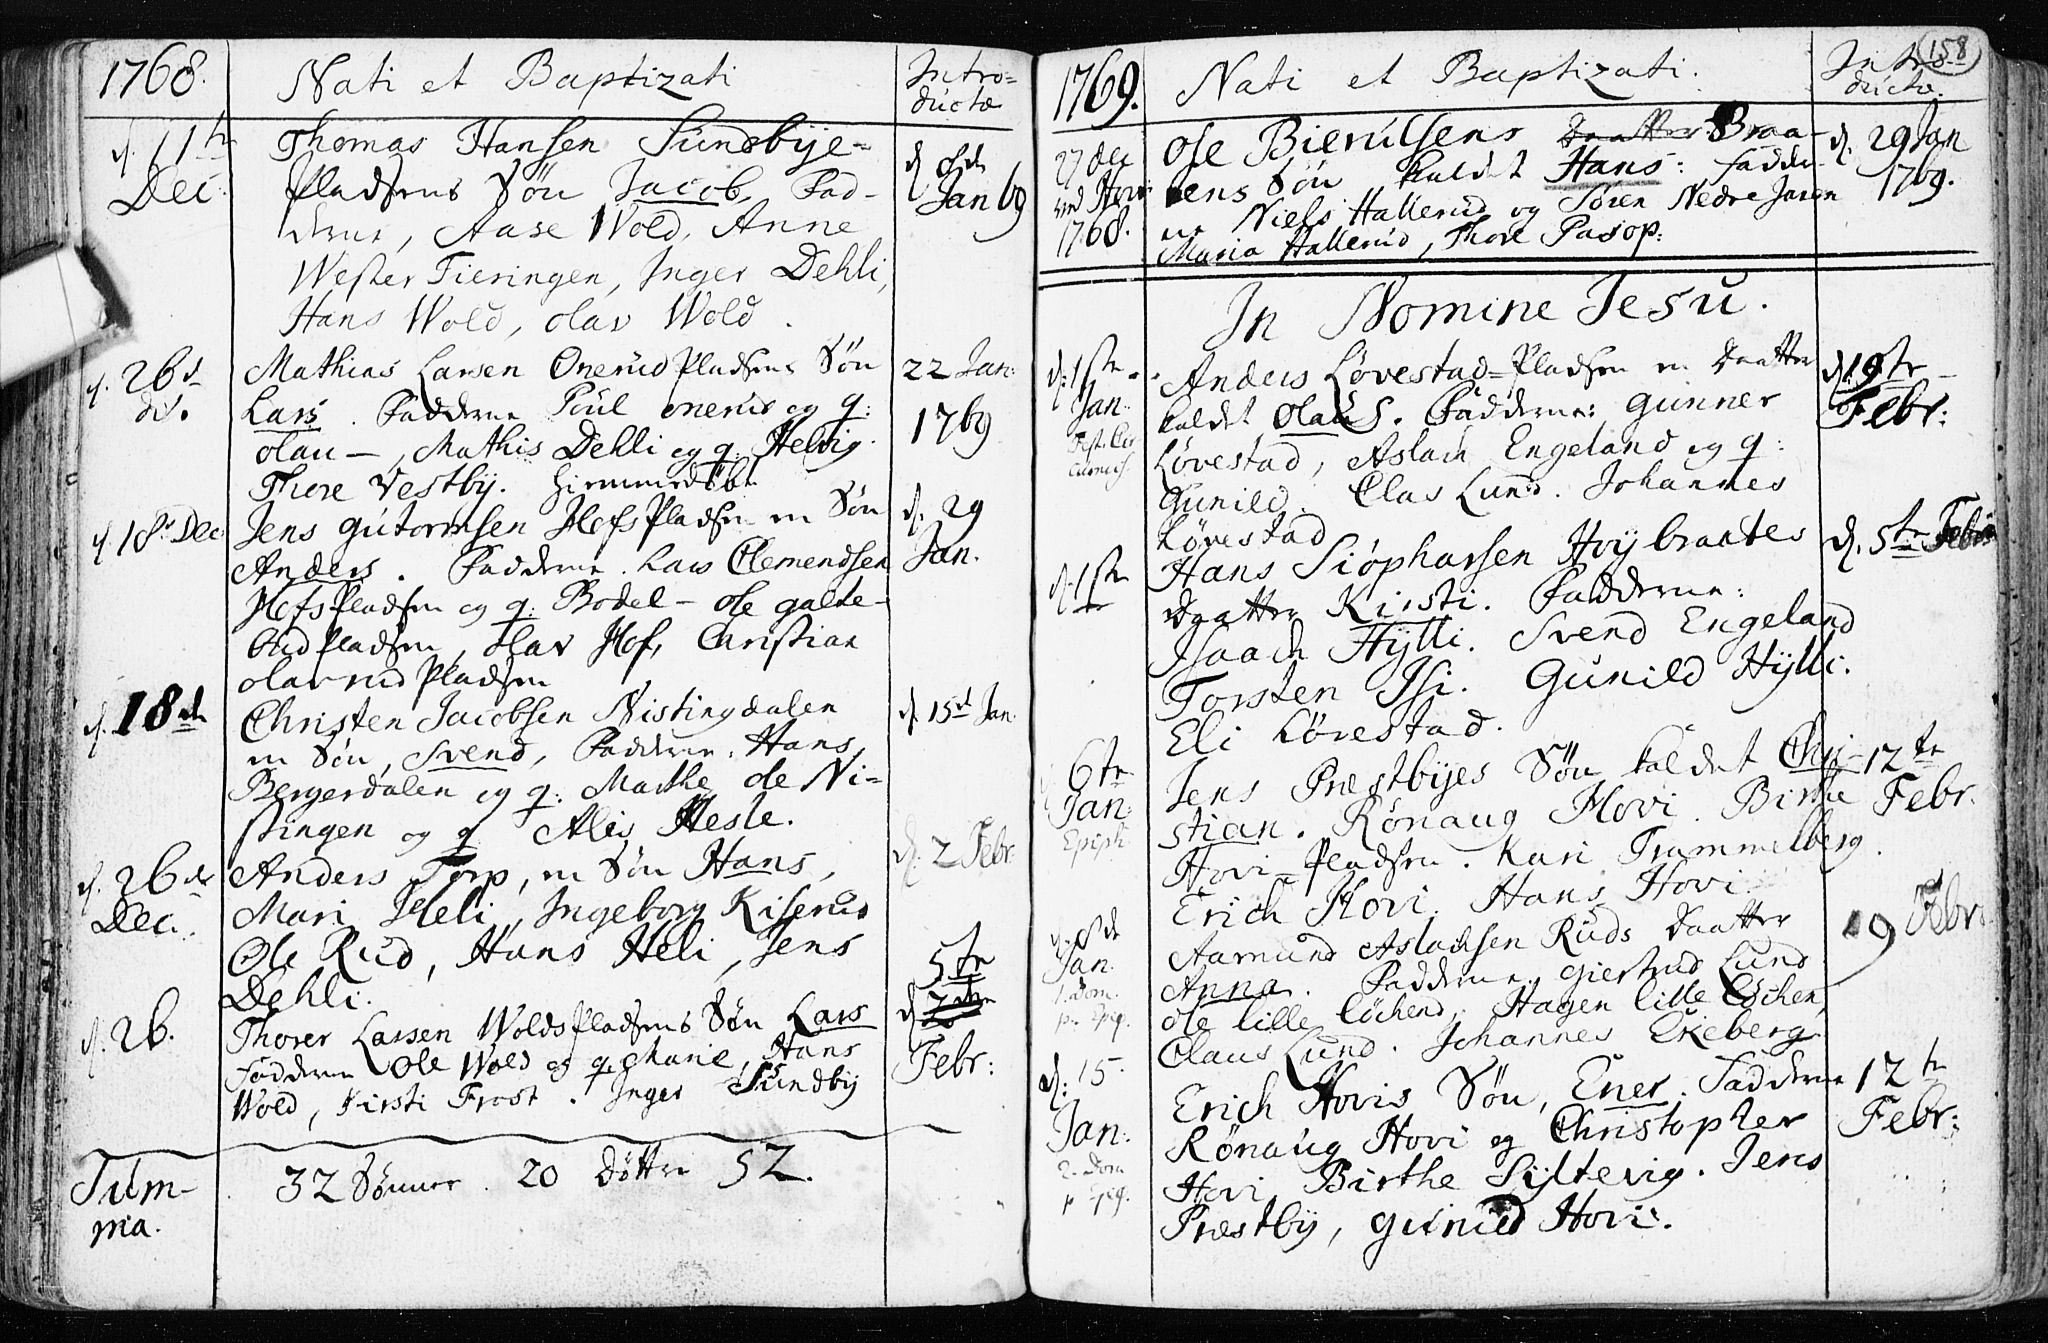 1768.
Nati et Baptizati
Intro=
ductæ
d. 11te
Dec.
Thomas Hansen Sundbÿe=
Pladsens Søn Jacob, Fad-
derne, Aase Wold, Anne
Wester Tieringen, Inger Dehli,
Hans Wold, olav Wold.
d. 8de
Jan 69
d. 26d
do.
Mathias Larsen Onerud Pladsens Søn
Lars. Fadderne Poul onerud og q:
olau —, Mathis Dehli og q: Helvig.
Thore Vestbÿ. hiemmedøbt
22 Jan:
1769
d. 18de Dec
Jens gutormsen Hofs Pladsen en Søn
Anders. Fadderne. Lars Clemendsen
Hofs Pladsen og q: Bodel — ole galte-
bud Pladsen, olav Hof, Christian
olavrud Pladsen
d. 29
Jan.
d. 18de
Christen Jacobsen Nistingdalen
en Søn, Svend, Fadderne. Hans
Bergerdalen og q: Marthe, ole Ni=
stingen og q Alis Hesle.
d. 15de Jan.
d. 26de
Dec.
Anders Torp, en Søn Hans,
Mari Heli, Ingeborg Kiserud
Ole Rud, Hans Heli, Jens
Dehli.
d. 2 Febr:
d. 26.
Thorer Larsen Wolds Pladsens Søn Lars
Fadderne Ole Wold og q. Marie, Hans
Wold, Kirsti Frost. Inger Sundbÿ
5te
d.
Febr:
Sum-
ma.
32 Sønner. 20 Døttre 52.
158
1769.
Nati et Baptizati.
Intro
ductæ.
27 dec
ved Hovi
1768.
Ole Bierulsens Daatter Braa-
tens Søn kaldet Hans: Fadder-
ne Niels Hallerud og Søren Nedre Jaren
Maria Hallerud, Thore Pasop:
d. 29 Jan
1769.
In Nomine Jesu.
d: 1ste
Jan.
Fest. Cir
cumcis.
Anders Løvestad=Pladsen en Daatter
kaldet Olaus. Fadderne: gunner
Løvestad, Aslach Engeland og q:
Gunild. Clas Lund. Johannes
Løvestad
d. 19te
Febr:
d. 1ste
Hans Siøphassen Hvÿbraates
Daatter Kirsti. Fadderne:
Isaach Hÿlli. Svend Engeland
Torsten Isi. Gunild Hÿlli.
Eli Løvestad.
d. 5te Febr
6te
Jan:
Epiph.
Jens Præstbÿes Søn kaldet Chri-
stian. Rønaug Hovi. Birthe
Hovi=Pladsen. Kari Trammelberg.
Erich Hovi. Hans Hovi.
12te
Febr.
d. 8de
Jan.
1. Dom.
p. Epiq.
Aamund Aslachsen Ruds Daatter
Anna. Fadderne, giertrud Lund
ole lille Cøchend, Hagen lille Cøchen,
Claus Lund. Johannes Ekeberg
19 Febr:
d: 15.
Jan:
2. Dom
p Epiq.
Erich Hovis Søn, Ener. Fadderne
Rønaug Hovi og Christopher
Hovi Birthe Sÿltevig. Jens
Præstbÿ, gunild Hovi.
12te
Febr: